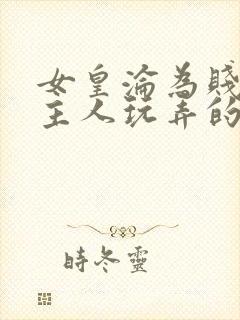 女皇淪為賤
主人玩弄的
時冬靈